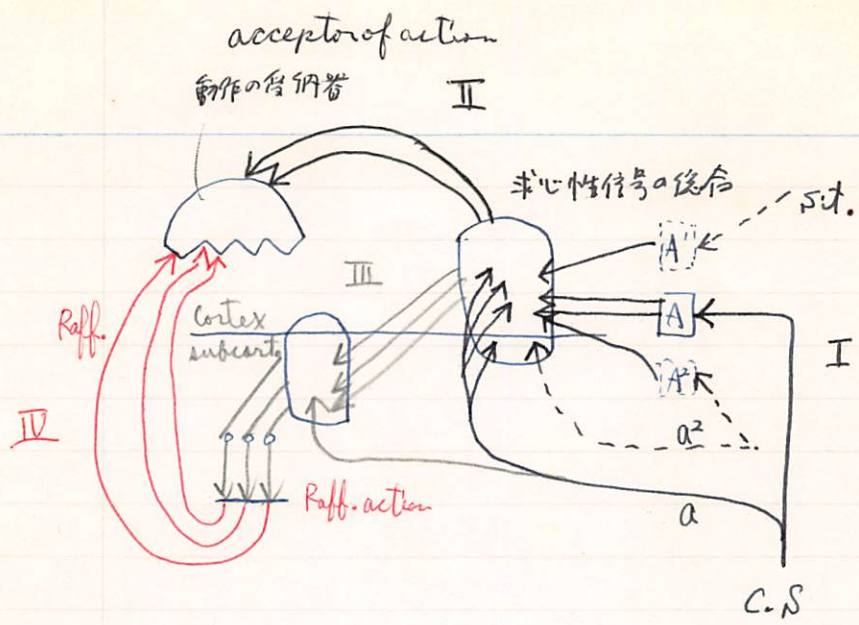 acceptor of action
動作の受納器
II
求心性信号の総合
sit.
A¹
III
Raff.
Cortex
subcort.
A
I
A²
IV
a²
Raff. action
a
C.S